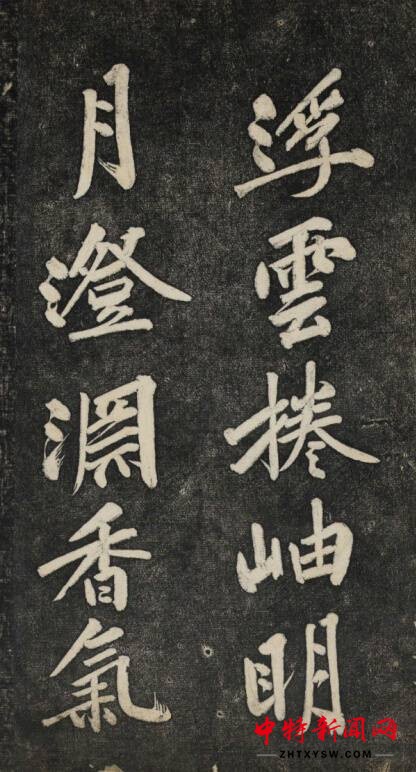 浮雲捲岫明
月澄渊香氣
中特新闻网
ZHTXYSW.COM